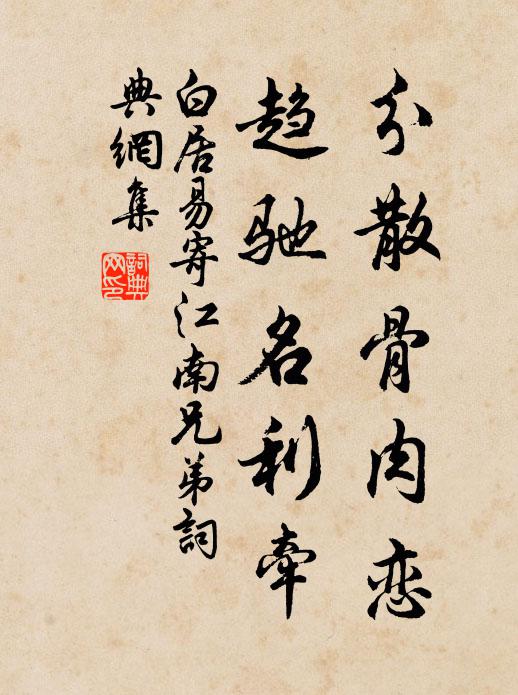 分散骨肉恋
趋驰名利牵
白居易寄江南兄弟詞
典網集
詞典
网印